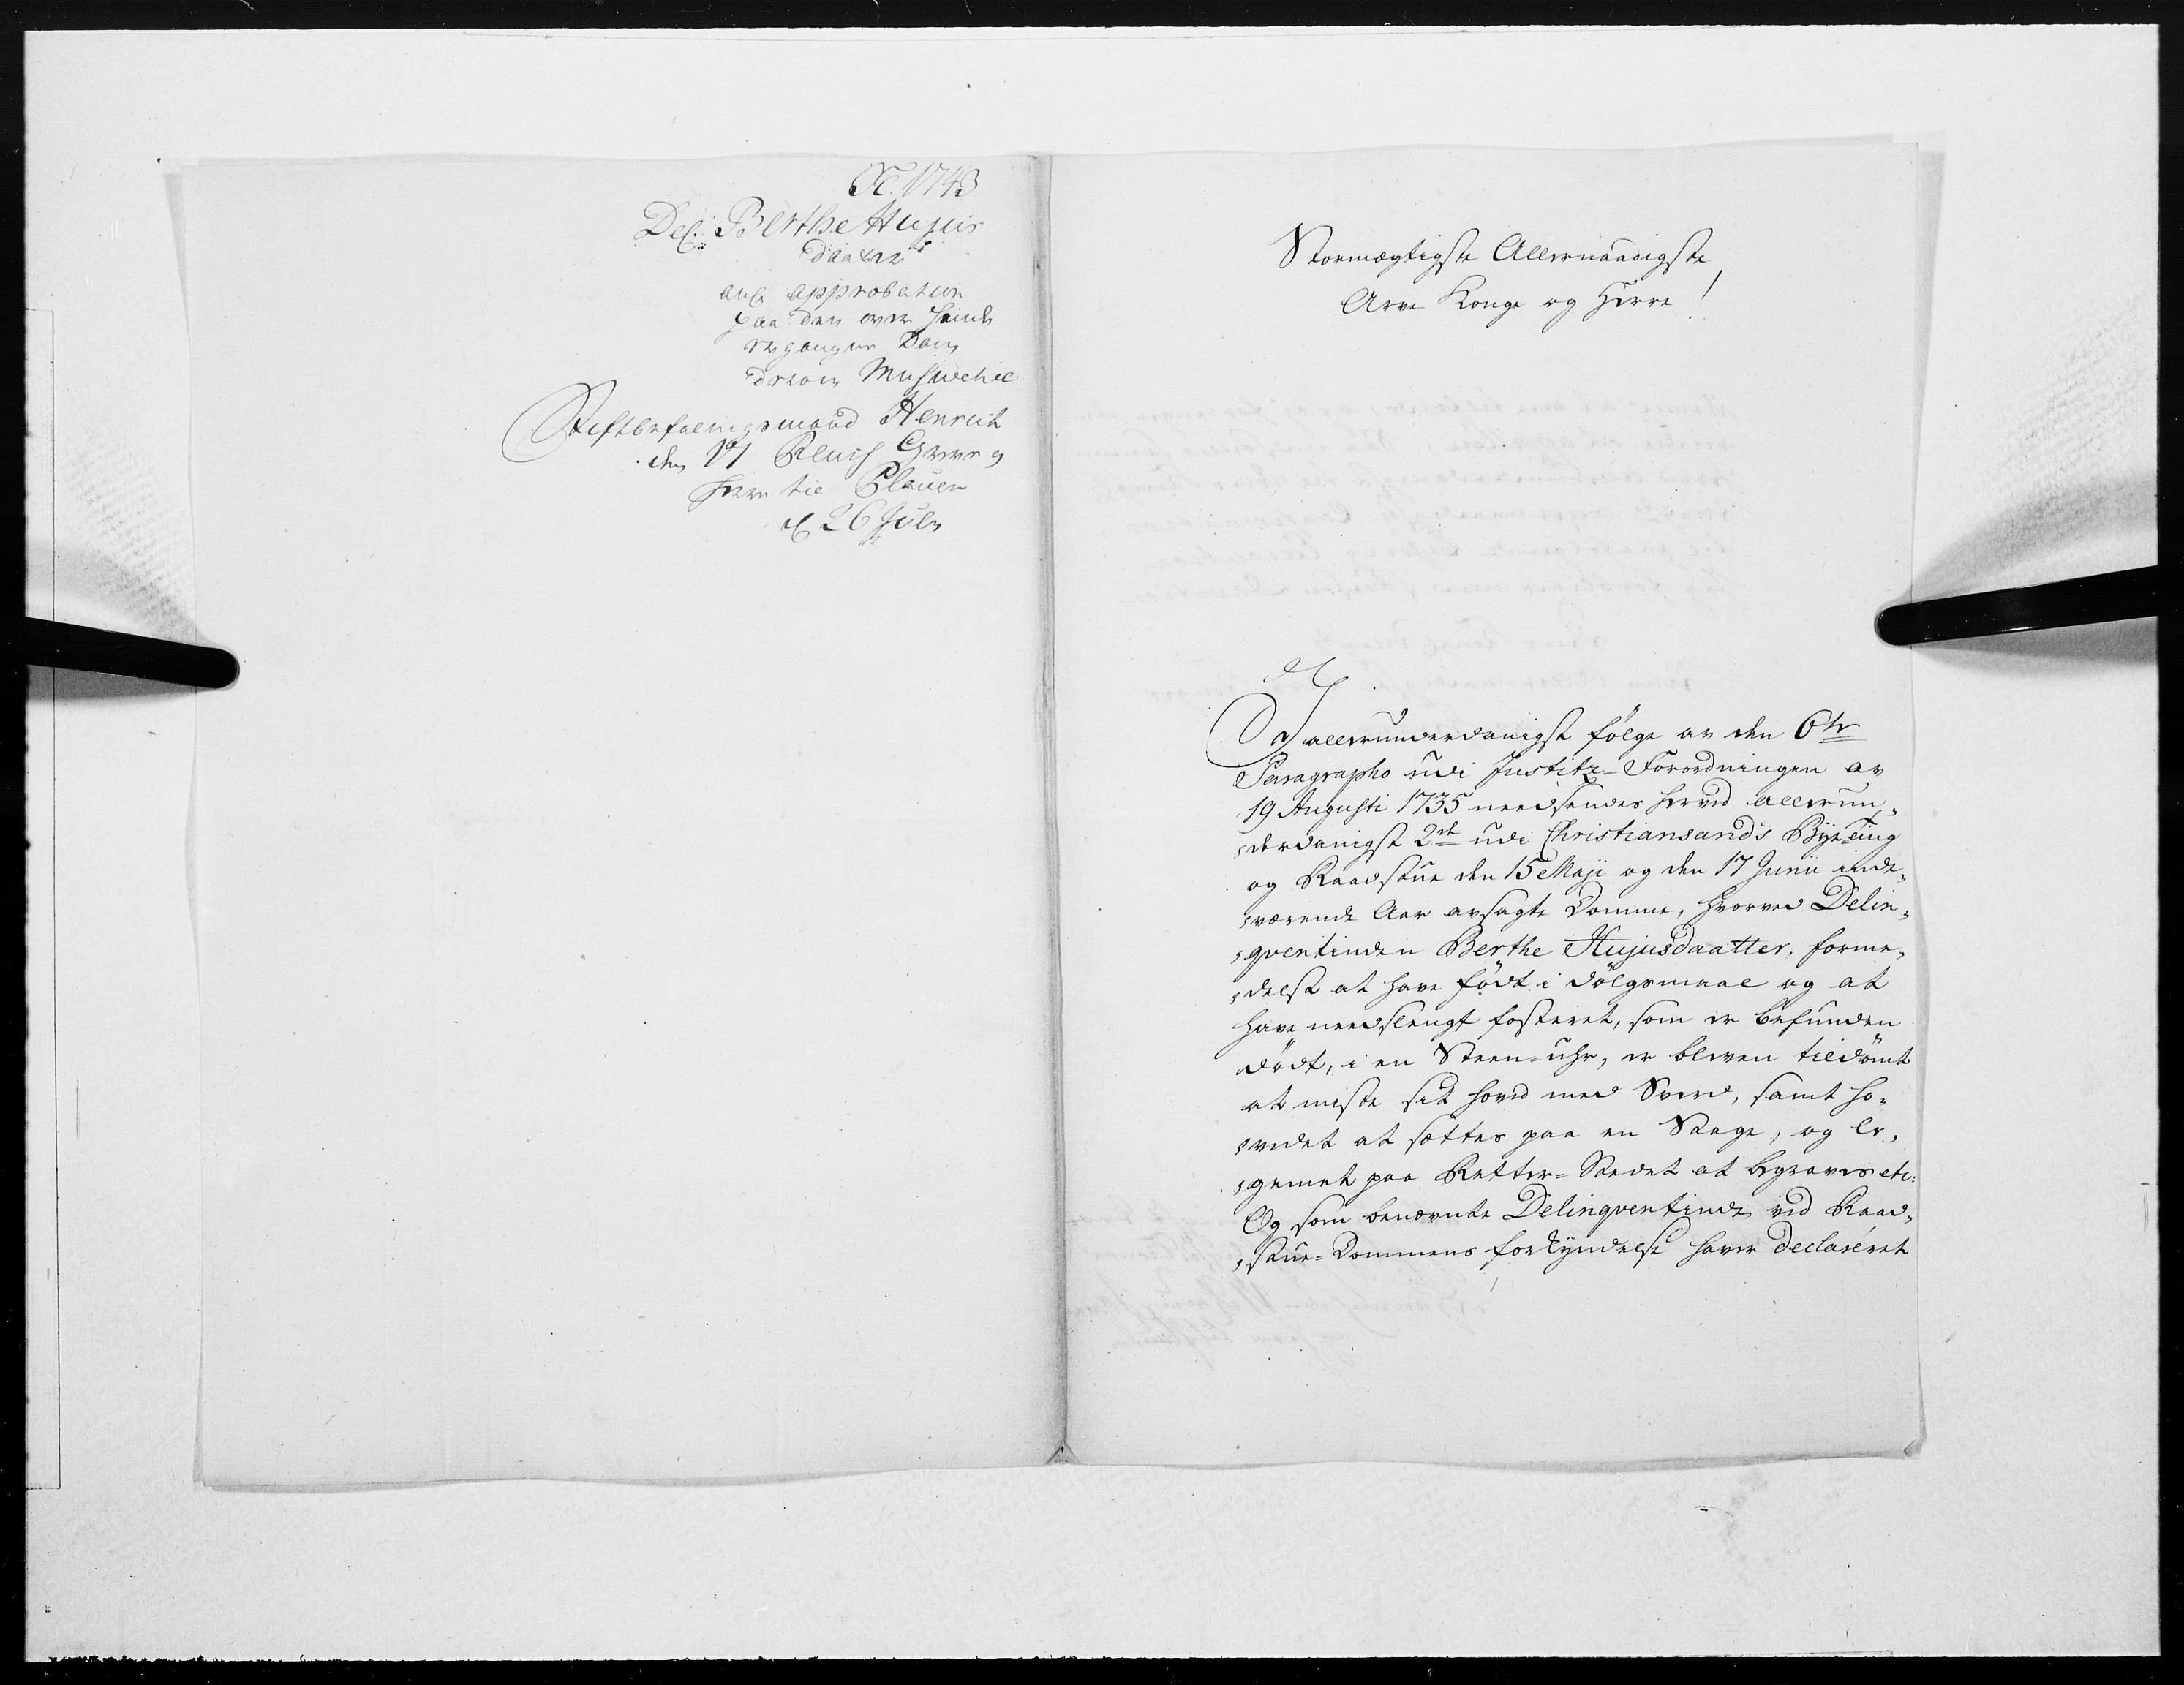 1743
Del: Berthe Hujus
daatter
ang approbation
paa den over hende
ergangne Dom
derom Missive til
Stiftbefalingsmand Henrich
den VI Reuss Greve og
Herre til Plauen
d 26 July
Stormægtigste Allernaadigste
Arve Konge og Herre!
I allerunderdanigst følge av den 6te
Paragrapho udi Justitz-Forordningen av
19 Augusti 1735 needsendes herved allerun-
derdanigst 2de udi Christiansands Byeting
og Raadstue den 15 Maji og den 17 Junii inde-
værende Aar avsagte Domme, hvorved Delin-
qventinden Berthe Hujusdaatter, forme-
delst at have født i dølgsmaal og at
have needslengt fosteret, som er befunden
dødt, i en Steen-uhr, er bleven tildømt
at miste sit hoved med Sverd, samt ho-
vedet at sættes paa en Stage, og Le-
gemet paa Retter-Stedet at begraves etc:
Og som benævnte Delinqventinde ved Raad-
stue-Dommens forkyndelse haver declareret